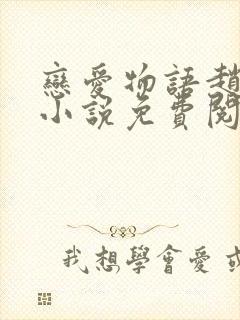 戀愛物語趙
小說免費閱
我想學會愛 或